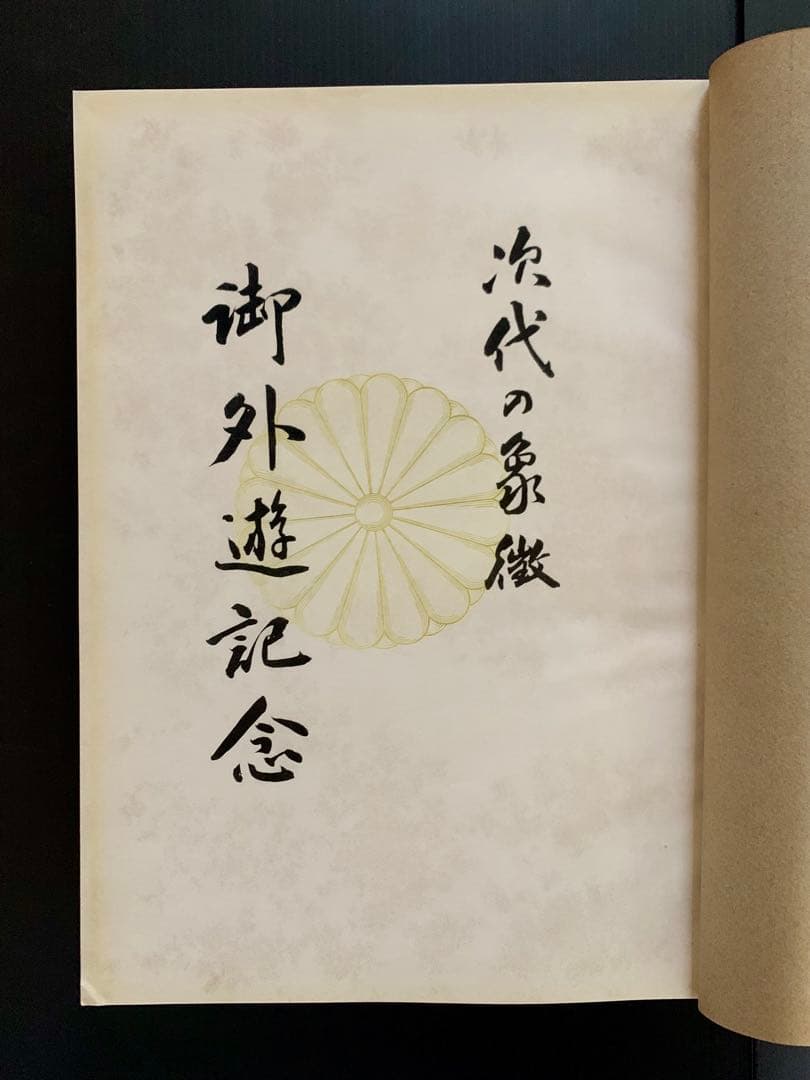 次代の象徴
御外遊記念